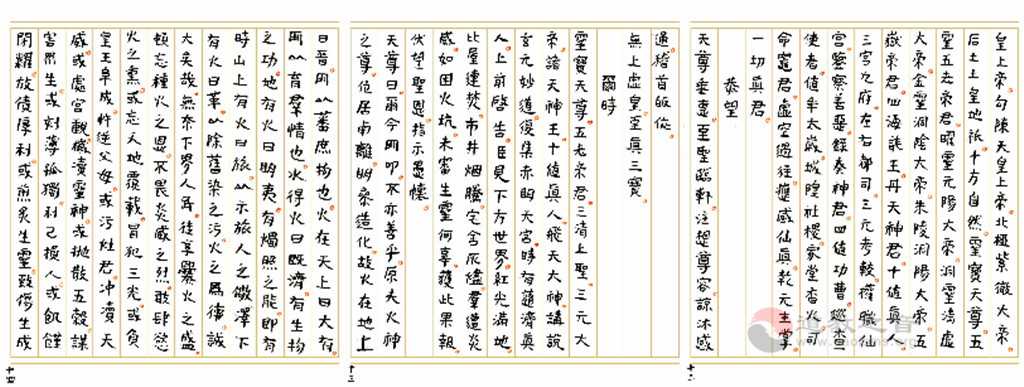 皇上帝勾陳天皇上帝北極紫微大帝
后土上皇地祇十方自然靈寶天尊五
靈五老帝君曜靈元陽大帝洞靈清虛
大帝金靈洞陰大帝朱陵洞陽大帝五
嶽帝君四海諸王丹天神君十值真人
三宮九府左右都司三元考較職仙
宮鑒察善惡錄奏神君四值功曹巡查
使者值年太歲城隍社稷家堂香火司
命竈君虛空過往應感仙真乾元主掌
一切真君
恭望
天尊垂慈至聖臨軒注想尊容諒沐感
十二
通稽首皈依
無上虛皇至真三寶
爾時
靈寶天尊五老帝君三清上聖三元大
帝諸天神王十值真人飛天大神講說
玄元妙道復集赤明天宮時有隨濟真
人上前啓告臣見下方世界紅光滿地
比屋連焚市井烟騰宅舍灰燼羣遭炎
威如田火坑未審生靈何辜獲此果報
伏望聖恩指示愚懷
天尊曰爾今叩不亦善乎原夫火神
之尊位居南離明造化故火在地上
十三
曰晉用以蕃庶物也火在天上曰大有
用以育羣情也水得火曰既濟有生物
之功地有火曰明夷有燭照之能即有
時山上有火曰旅以示旅人之儆澤下
有火曰革以除舊染之污火之爲德誠
大矣哉無奈下界人民徒享爨火之盛
頓忘種火之恩不畏炎威之烈敢肆慾
火之熏或忘天地覆載冒犯三光或負
皇王阜成忤逆父母或污灶君冲瀆天
威或處宮觀穢瀆靈神或拋散五穀謀
害眾生或刻薄孤獨利己損人或飢饉
閉糶放債厚利或煎炙生靈致傷生成
十四
道教之音